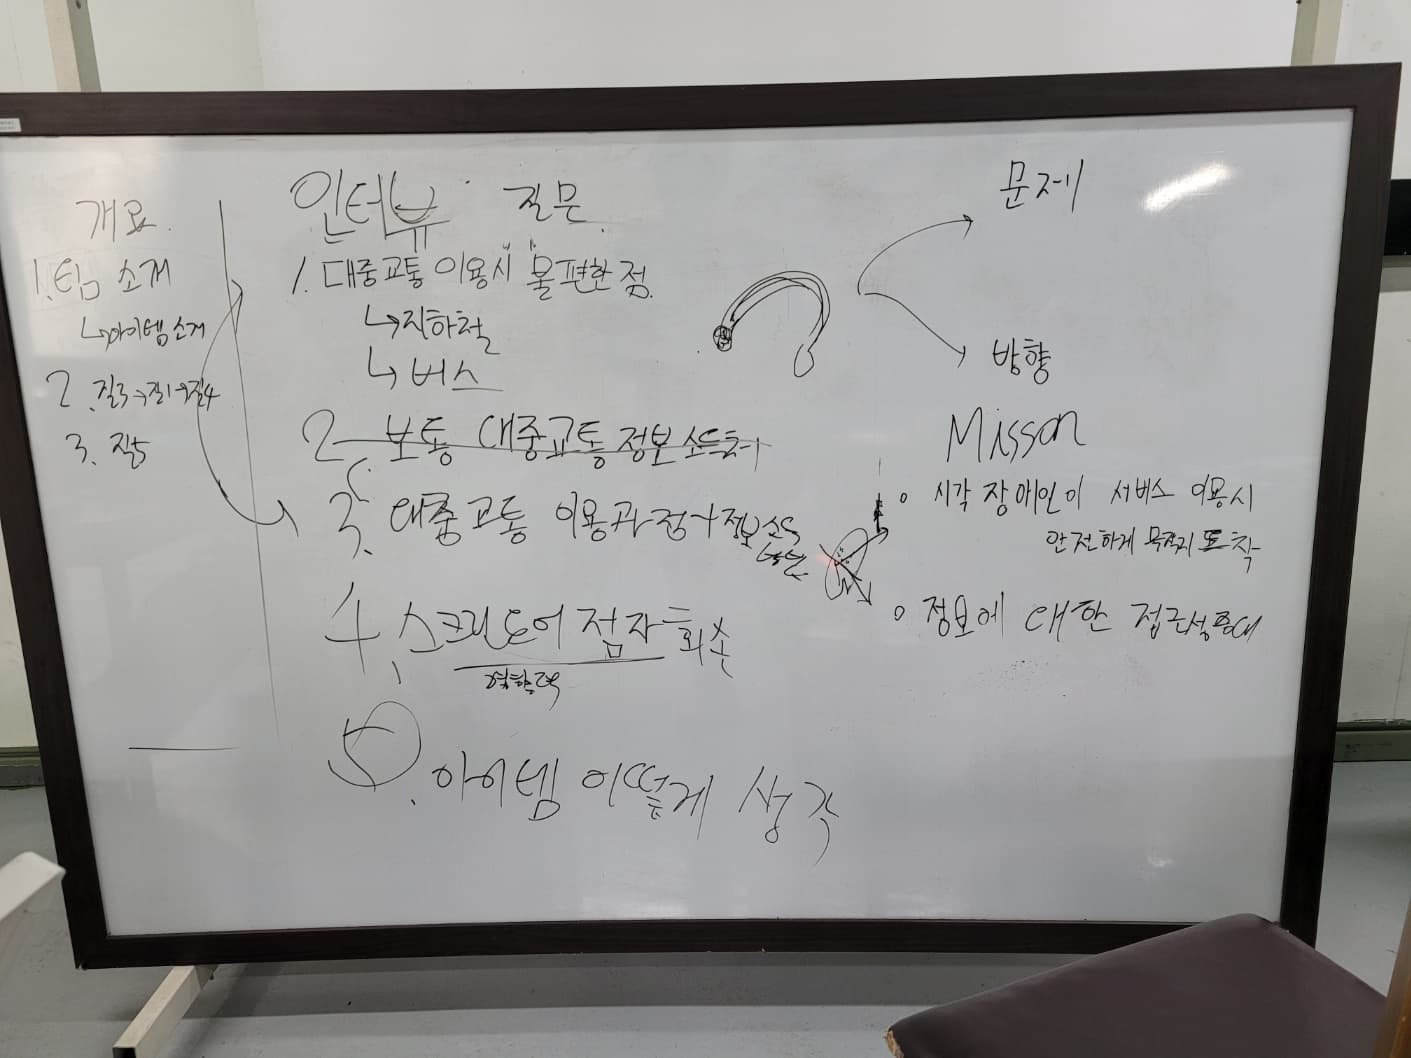 개요
1. 팀 소개
↳아이템 소개
2. 질3→질1→질4
3. 질5
인터뷰 질문
1. 대중교통 이용시 불편한 점.
↳지하철
↳버스
2 보통 대중교통 정보 습득처
3. 대중교통 이용과정+정보습득
4. 스크린도어 점자 훼손
5. 아이템 어떻게 생각
문제
방향
Misson
○ 시각 장애인이 서비스 이용시
안전하게 목적지 도착
○ 정보에 대한 접근성 증대